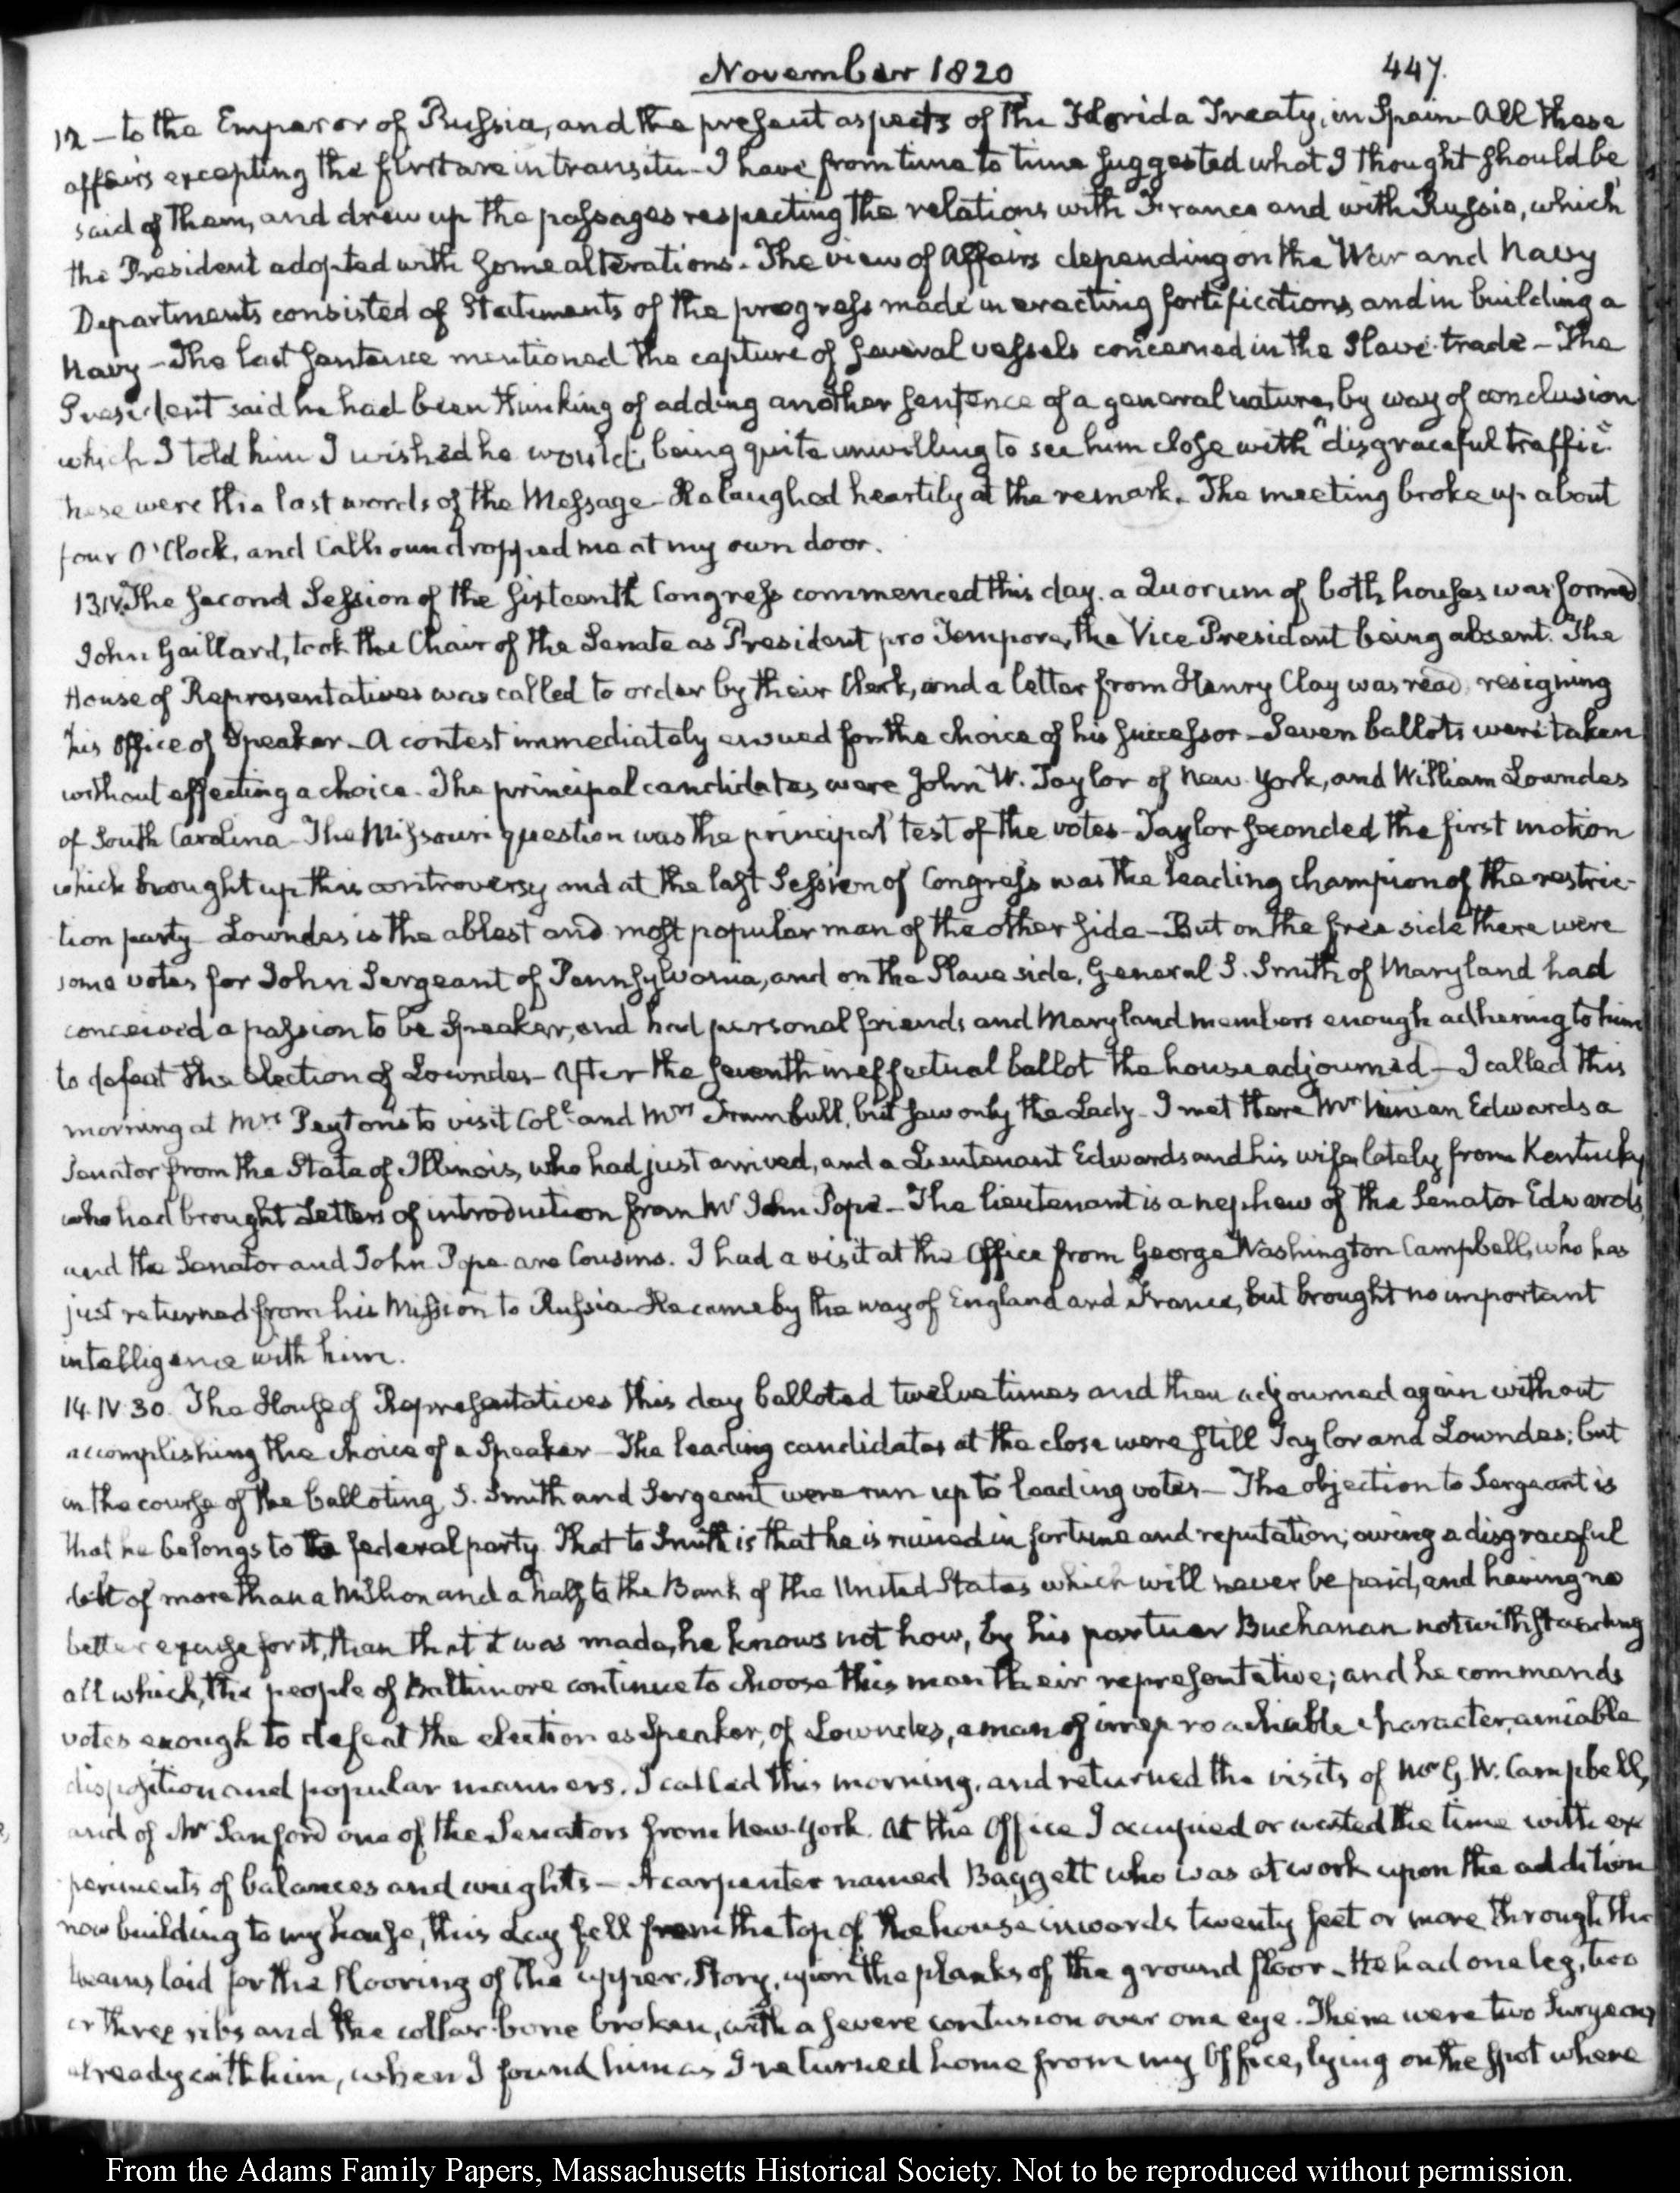 November 1820
447.
12 — to the Emperor of Russia, and the present aspects of the Florida Treaty, in Spain — All these
affairs excepting the first are in transitu — I have from time to time suggested what I thought should be
said of them, and drew up the passages respecting the relations with France and with Russia, which
the President adopted with some alterations — The view of Affairs depending on the War and Navy
Departments consisted of Statements of the progress made in erecting fortifications, and in building a
Navy — The last sentence mentioned the capture of several vessels concerned in the Slave-trade — The
President said he had been thinking of adding another sentence of a general nature, by way of conclusion
which I told him I wished he would; being quite unwilling to see him close with "disgraceful traffic"
these were the last words of the Message — He laughed heartily at the remark. The meeting broke up about
four O'Clock, and Calhoun dropped me at my own door.
13. IV. The second Session of the sixteenth Congress commenced this day. a Quorum of both houses was formed
John Gaillard, took the Chair of the Senate as President pro Tempore, the Vice President being absent. The
House of Representatives was called to order by their Clerk, and a letter from Henry Clay was read, resigning
his Office of Speaker — A contest immediately ensued for the choice of his successor — Seven ballots were taken
without effecting a choice. The principal candidates were John W. Taylor of New-York, and William Lowndes
of South Carolina — The Missouri question was the principal test of the votes — Taylor seconded the first motion
which brought up this controversy and at the last Session of Congress was the leading champion of the restric-
tion party — Lowndes is the ablest and most popular man of the other side — But on the free side there were
some votes for John Sergeant of Pennsylvania, and on the Slave side, General S. Smith of Maryland had
conceived a passion to be Speaker, and had personal friends and Maryland members enough adhering to him
to defeat the election of Lowndes — After the seventh ineffectual ballot the house adjourned — I called this
morning at Mrs Peyton's to visit Coll and Mrs Trumbull, but saw only the Lady — I met there Mr Ninian Edwards a
Senator from the State of Illinois, who had just arrived, and a Lieutenant Edwards and his wife lately from Kentucky
who had brought Letters of introduction from Mr John Pope — The lieutenant is a nephew of the Senator Edwards,
and the Senator and John Pope are Cousins. I had a visit at the Office from George Washington Campbell, who has
just returned from his Mission to Russia — He came by the way of England and France, but brought no important
intelligence with him.
14. IV. 30. The House of Representatives this day balloted twelve times and then adjourned again without
accomplishing the choice of a Speaker — The leading candidates at the close were still Taylor and Lowndes; but
in the course of the balloting, S. Smith and Sergeant were run up to leading votes — The objection to Sergeant is
that he belongs to the federal party. That to Smith is that he is ruined in fortune and reputation; owing a disgraceful
debt of more than a Million and a half to the Bank of the United States which will never be paid, and having no
better excuse for it, than that it was made, he knows not how, by his partner Buchanan notwithstanding
all which, the people of Baltimore continue to choose this man their representative; and he commands
votes enough to defeat the election as Speaker, of Lowndes, a man of irreproachable character, amiable
disposition and popular manners. I called this morning, and returned the visits of Mr G. W. Campbell,
and of Mr Sanford one of the Senators from New-York. At the Office I occupied or wasted the time with ex-
periments of balances and weights — A carpenter named Baggett who was at work upon the addition
now building to my house, this day fell from the top of the house inwards twenty feet or more, through the
beams laid for the flooring of the upper Story, upon the planks of the ground floor — He had one leg, two
or three ribs and the collar-bone broken, with a severe contusion over one eye. There were two Surgeons
already with him, when I found him as I returned home from my Office, lying on the spot where
From the Adams Family Papers, Massachusetts Historical Society. Not to be reproduced without permission.